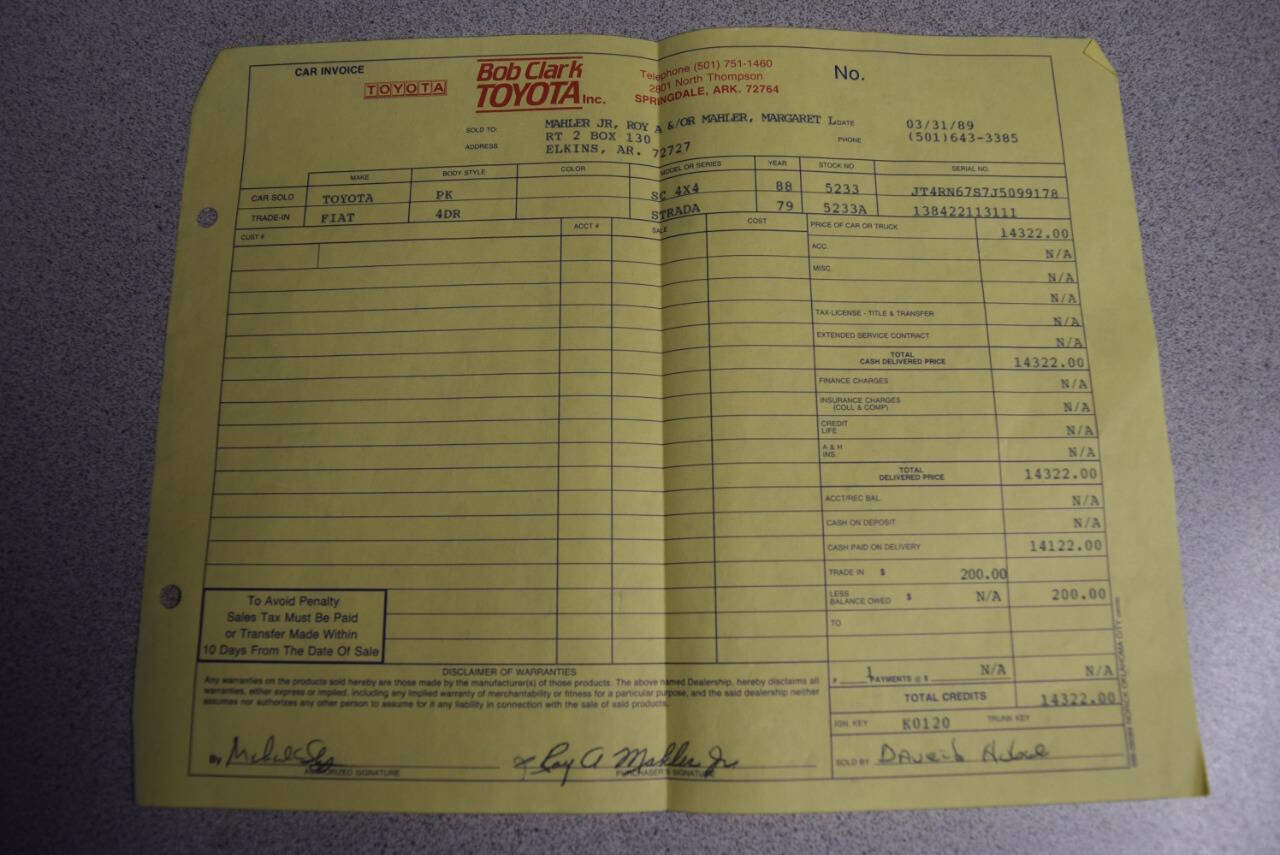 CAR INVOICE
TOYOTA
Bob Clark
TOYOTA Inc.
Telephone (501) 751-1460
2801 North Thompson
SPRINGDALE, ARK. 72764
No.
SOLD TO: MAHLER JR, ROY A &/OR MAHLER, MARGARET L DATE 03/31/89
ADDRESS RT 2 BOX 130 PHONE (501)643-3385
ELKINS, AR. 72727
MAKE BODY STYLE COLOR MODEL OR SERIES YEAR STOCK NO. SERIAL NO.
CAR SOLD TOYOTA PK SC 4X4 88 5233 JT4RN67S7J5099178
TRADE-IN FIAT 4DR STRADA 79 5233A 138422113111
CUST # ACCT # SALE COST PRICE OF CAR OR TRUCK 14322.00
ACC. N/A
MISC. N/A
N/A
TAX-LICENSE - TITLE & TRANSFER N/A
EXTENDED SERVICE CONTRACT N/A
TOTAL
CASH DELIVERED PRICE 14322.00
FINANCE CHARGES N/A
INSURANCE CHARGES
(COLL & COMP) N/A
CREDIT
LIFE N/A
A & H
INS. N/A
TOTAL
DELIVERED PRICE 14322.00
ACCT/REC BAL. N/A
CASH ON DEPOSIT N/A
CASH PAID ON DELIVERY 14122.00
TRADE IN $ 200.00
LESS
BALANCE OWED $ N/A 200.00
TO
# 1 PAYMENTS @ $ N/A N/A
TOTAL CREDITS 14322.00
IGN. KEY K0120 TRUNK KEY
SOLD BY
To Avoid Penalty
Sales Tax Must Be Paid
or Transfer Made Within
10 Days From The Date Of Sale
DISCLAIMER OF WARRANTIES
Any warranties on the products sold hereby are those made by the manufacturer(s) of those products. The above named Dealership, hereby disclaims all
warranties, either express or implied, including any implied warranty of merchantability or fitness for a particular purpose, and the said dealership neither
assumes nor authorizes any other person to assume for it any liability in connection with the sale of said products.
By
AUTHORIZED SIGNATURE
x Roy A Mahler Jr
PURCHASER'S SIGNATURE